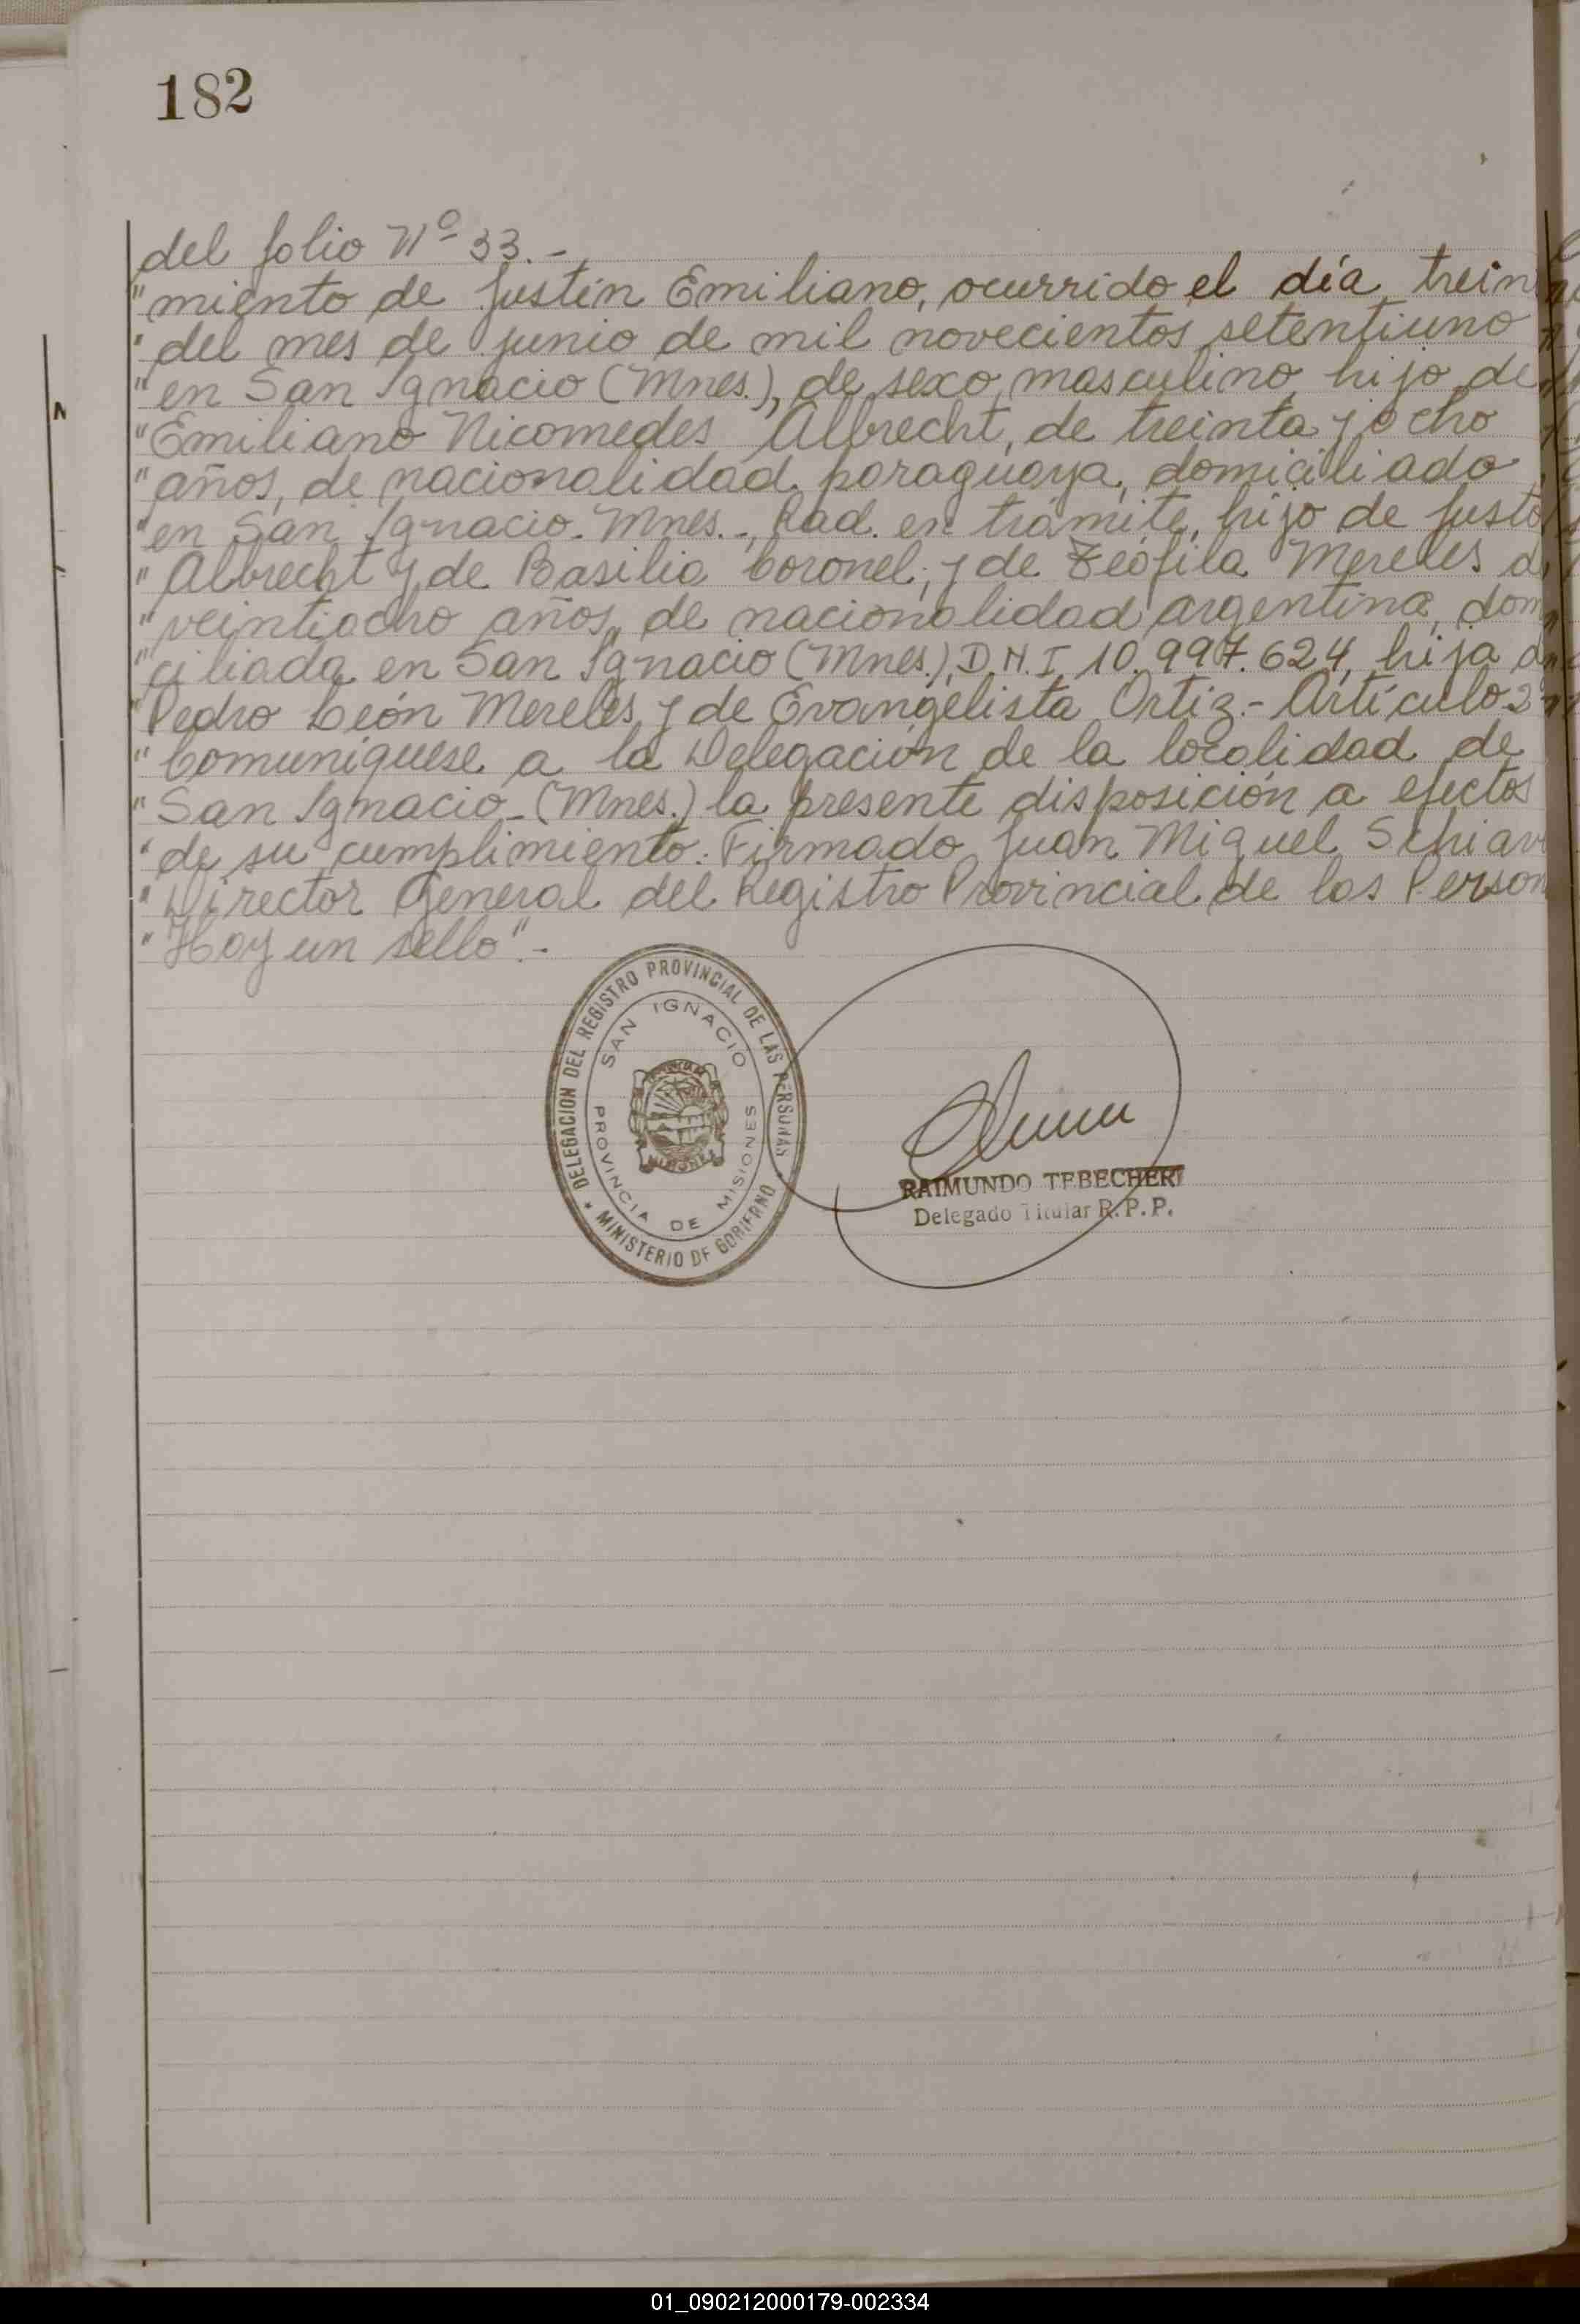 182
del folio Nº 33.-
"miento de Justin Emiliano, ocurrido el día trein
"del mes de junio de mil novecientos setentiuno
"en San Ignacio (Mnes.), de sexo masculino, hijo de
"Emiliano Nicomedes Albrecht, de treinta y ocho
"años, de nacionalidad paraguaya, domiciliado
"en San Ignacio-Mnes.-, Rad. en trámite, hijo de Justo
"Albrecht y de Basilia Coronel; y de Teófila Mereles d
"veintiocho años, de nacionalidad argentina, dom
"ciliada en San Ignacio (Mnes.), D.N.I. 10.997.624, hija d
"Pedro León Mereles y de Evangelista Ortiz.- Artículo 2
"Comuníquese a la Delegación de la localidad de
"San Ignacio-(Mnes.) la presente disposición a efectos
"de su cumplimiento. Firmado Juan Miguel Schiav
"Director General del Registro Provincial de las Person
"Hay un sello".-
DELEGACION DEL REGISTRO PROVINCIAL DE LAS PERSONAS
SAN IGNACIO
PROVINCIA DE MISIONES
* MINISTERIO DE GOBIERNO
MISIONES
RAIMUNDO TEBECHERI
Delegado Titular R.P.P.
01_090212000179-002334